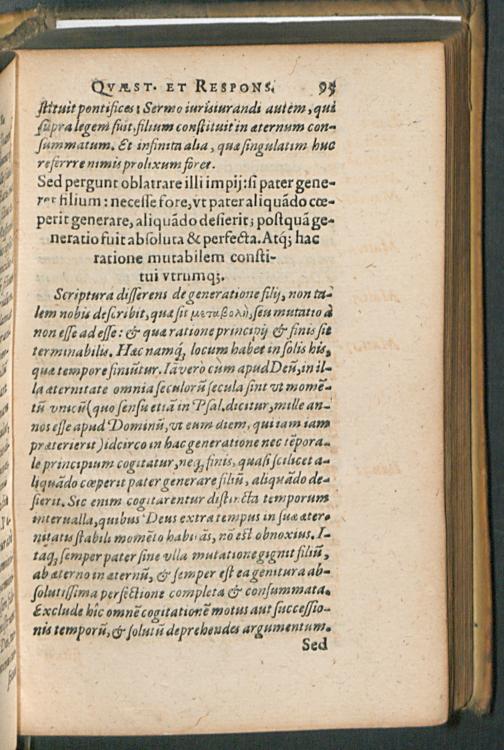 QVÆST. ET RESPONS. 95
stituit pontifices: Sermo iurisiurandi autem, qui
supra legem fuit, filium constituit in æternum con-
summatum. Et infinita alia, quæ singulatim huc
referrre nimis prolixum foret.
Sed pergunt oblatrare illi impij: si pater gene-
ret filium: necesse fore, vt pater aliquãdo cœ-
perit generare, aliquãdo desierit; postquã ge-
neratio fuit absoluta & perfecta. Atq; hac
ratione mutabilem consti-
tui vtrumq;.
Scriptura disserens de generatione filij, non ta-
lem nobis describit, quæ sit μεταβολὴ, seu mutatio à
non esse ad esse: & quæ ratione principij & finis sit
terminabilis. Hæc namq, locum habet in solis his,
quæ tempore finiũtur. Iã vero cum apud Deũ, in il-
la æternitate omnia seculorũ secula sint vt momẽ-
tũ vnicũ (quo sensu etiã in Psal. dicitur, mille an-
nos esse apud Dominũ, vt eum diem, qui iam iam
præterierit) idcirco in hac generatione nec tẽpora-
le principium cogitatur, neq, finis, quasi scilicet a-
liquãdo cœperit pater generare filiũ, aliquãdo de-
sierit. Sic enim cogitarentur distincta temporum
interualla, quibus Deus extra tempus in sua æter-
nitatis stabili momẽto habitãs, nõ est obnoxius. I-
taq, semper pater sine vlla mutatione gignit filiũ,
ab æterno in æternũ, & semper est ea genitura ab-
solutissima perfectione completa & consummata.
Exclude hîc omnẽ cogitationẽ motus aut successio-
nis temporũ, & solutũ deprehendes argumentum.
Sed